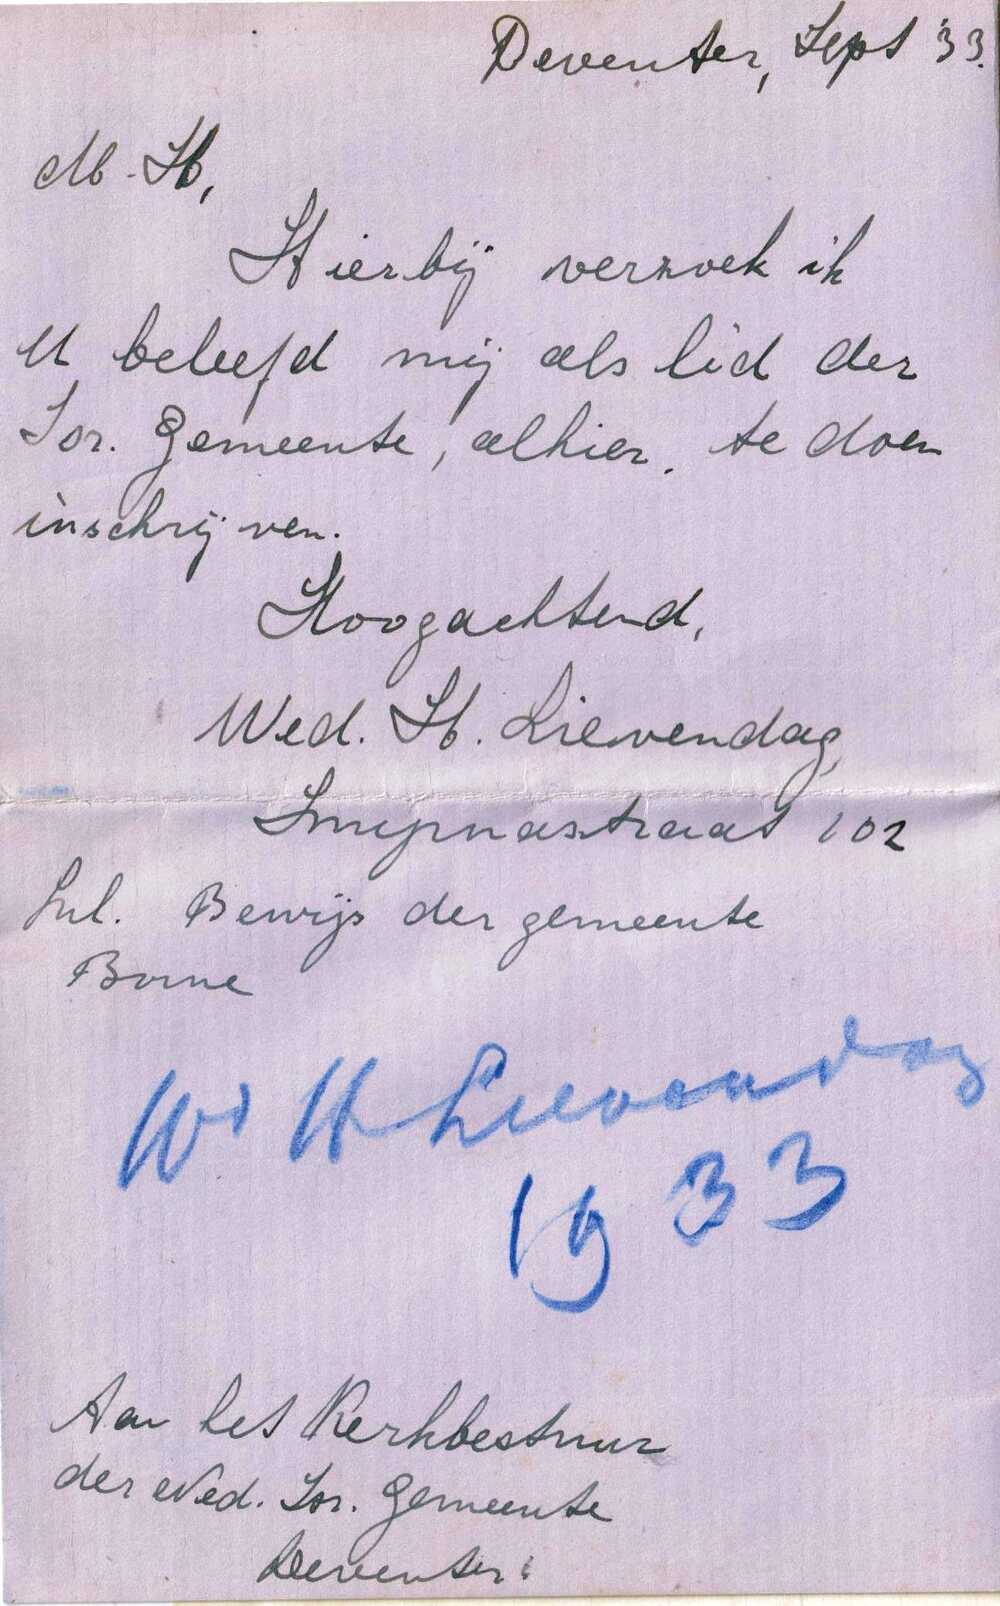 Deventer, Sept '33.
M. H,
Hierbij verzoek ik
U beleefd mij als lid der
Isr. Gemeente, alhier. te doen
inschrijven.
Hoogachtend,
Wed. H. Lievendag,
Smyrnastraat 102
Inl. Bewijs der gemeente
Borne
Wd H Lievendag
1933
Aan het Kerkbestuur
der Ned. Isr. Gemeente
Deventer.